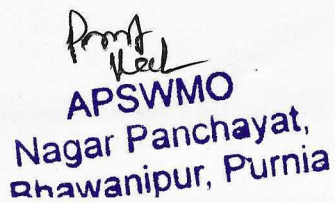 APSWMO
Nagar Panchayat,
Bhawanipur, Purnia